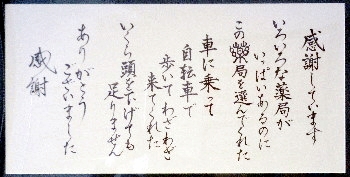 感謝しています
いろいろな薬局が
いっぱいあるのに
この薬局を選んでくれた
車に乗って
自転車で
歩いてわざわざ
来てくれた
いくら頭を下げても
足りません
ありがとう
ございました
感謝